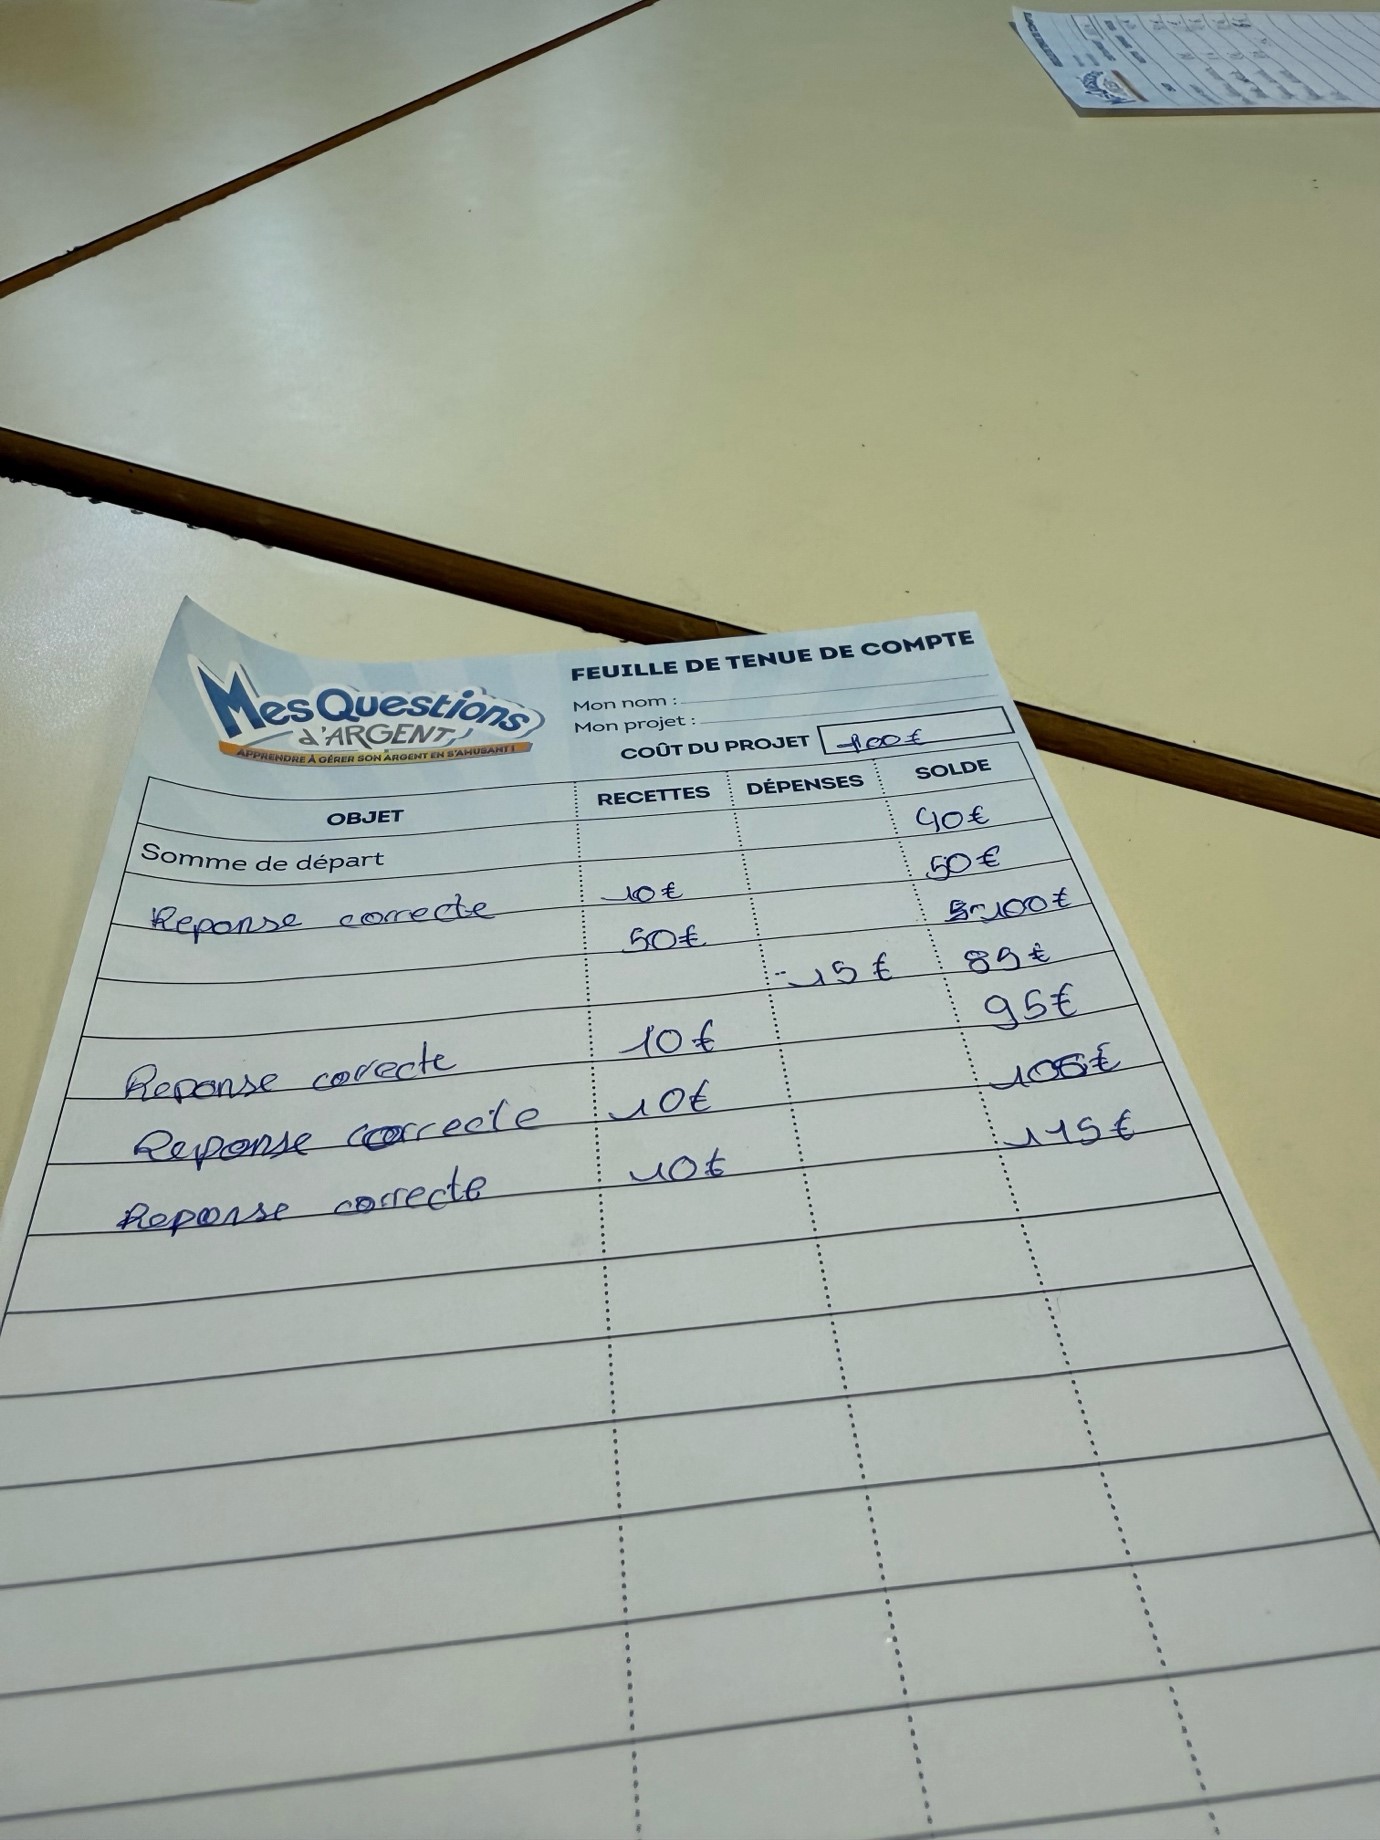 FEUILLE DE TENUE DE COMPTE
Mes Questions
d'ARGENT
APPRENDRE À GÉRER SON ARGENT EN S'AMUSANT !
Mon nom :
Mon projet :
COÛT DU PROJET 100€
OBJET RECETTES DÉPENSES SOLDE
Somme de départ 40€
Reponse correcte 10€ 50€
50€ 100€
-15€ 85€
Reponse correcte 10€ 95€
Reponse correcte 10€ 105€
Reponse correcte 10€ 115€